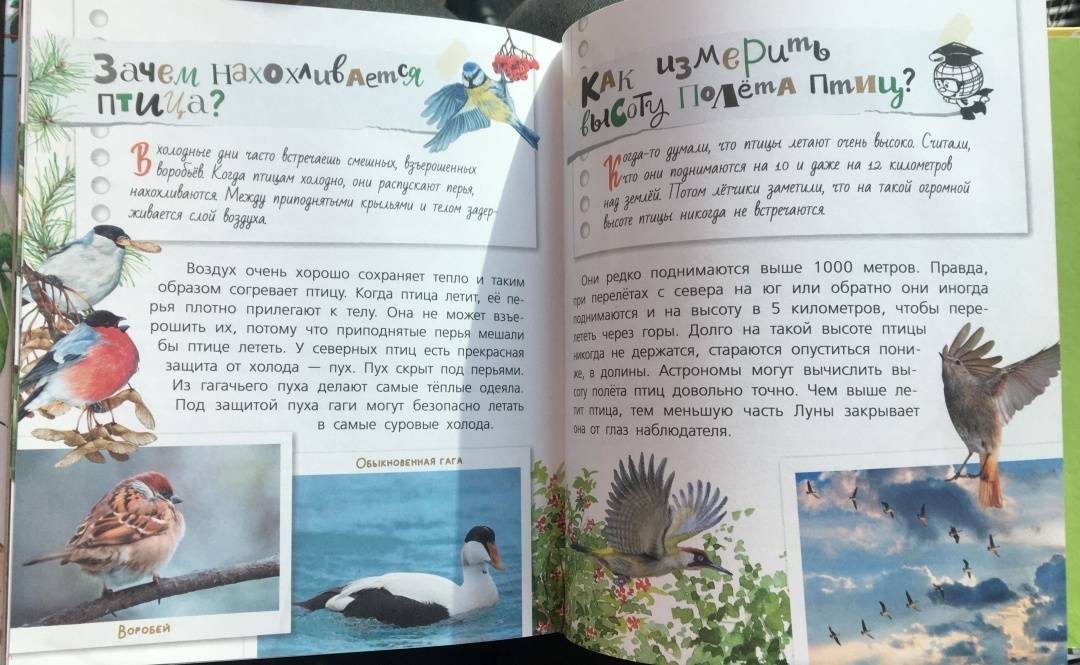 Зачем нахохливается
птица?
В холодные дни часто встречаешь смешных, взъерошенных
воробьёв. Когда птицам холодно, они распускают перья,
нахохливаются. Между приподнятыми крыльями и телом задер-
живается слой воздуха.
Воздух очень хорошо сохраняет тепло и таким
образом согревает птицу. Когда птица летит, её пе-
рья плотно прилегают к телу. Она не может взъе-
рошить их, потому что приподнятые перья мешали
бы птице лететь. У северных птиц есть прекрасная
защита от холода — пух. Пух скрыт под перьями.
Из гагачьего пуха делают самые тёплые одеяла.
Под защитой пуха гаги могут безопасно летать
в самые суровые холода.
Обыкновенная гага
Воробей
Как измерить
высоту полёта птиц?
Когда-то думали, что птицы летают очень высоко. Считали,
что они поднимаются на 10 и даже на 12 километров
над землёй. Потом лётчики заметили, что на такой огромной
высоте птицы никогда не встречаются.
Они редко поднимаются выше 1000 метров. Правда,
при перелётах с севера на юг или обратно они иногда
поднимаются и на высоту в 5 километров, чтобы пере-
лететь через горы. Долго на такой высоте птицы
никогда не держатся, стараются опуститься пони-
же, в долины. Астрономы могут вычислить вы-
соту полёта птиц довольно точно. Чем выше ле-
тит птица, тем меньшую часть Луны закрывает
она от глаз наблюдателя.